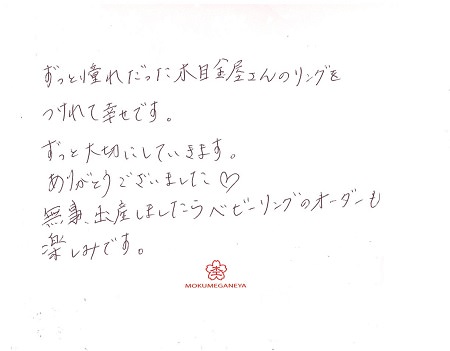 ずっと憧れだった木目金屋さんのリングを
つけれて幸せです。
ずっと大切にしていきます。
ありがとうございました♡
無事、出産しましたらベビーリングのオーダーも
楽しみです。
MOKUMEGANEYA